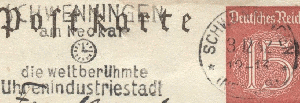 SCHWENNINGEN
Postkarte
am Neckar
die weltberühmte
Uhrenindustriestadt
SCHW
Deutsches Reich
15